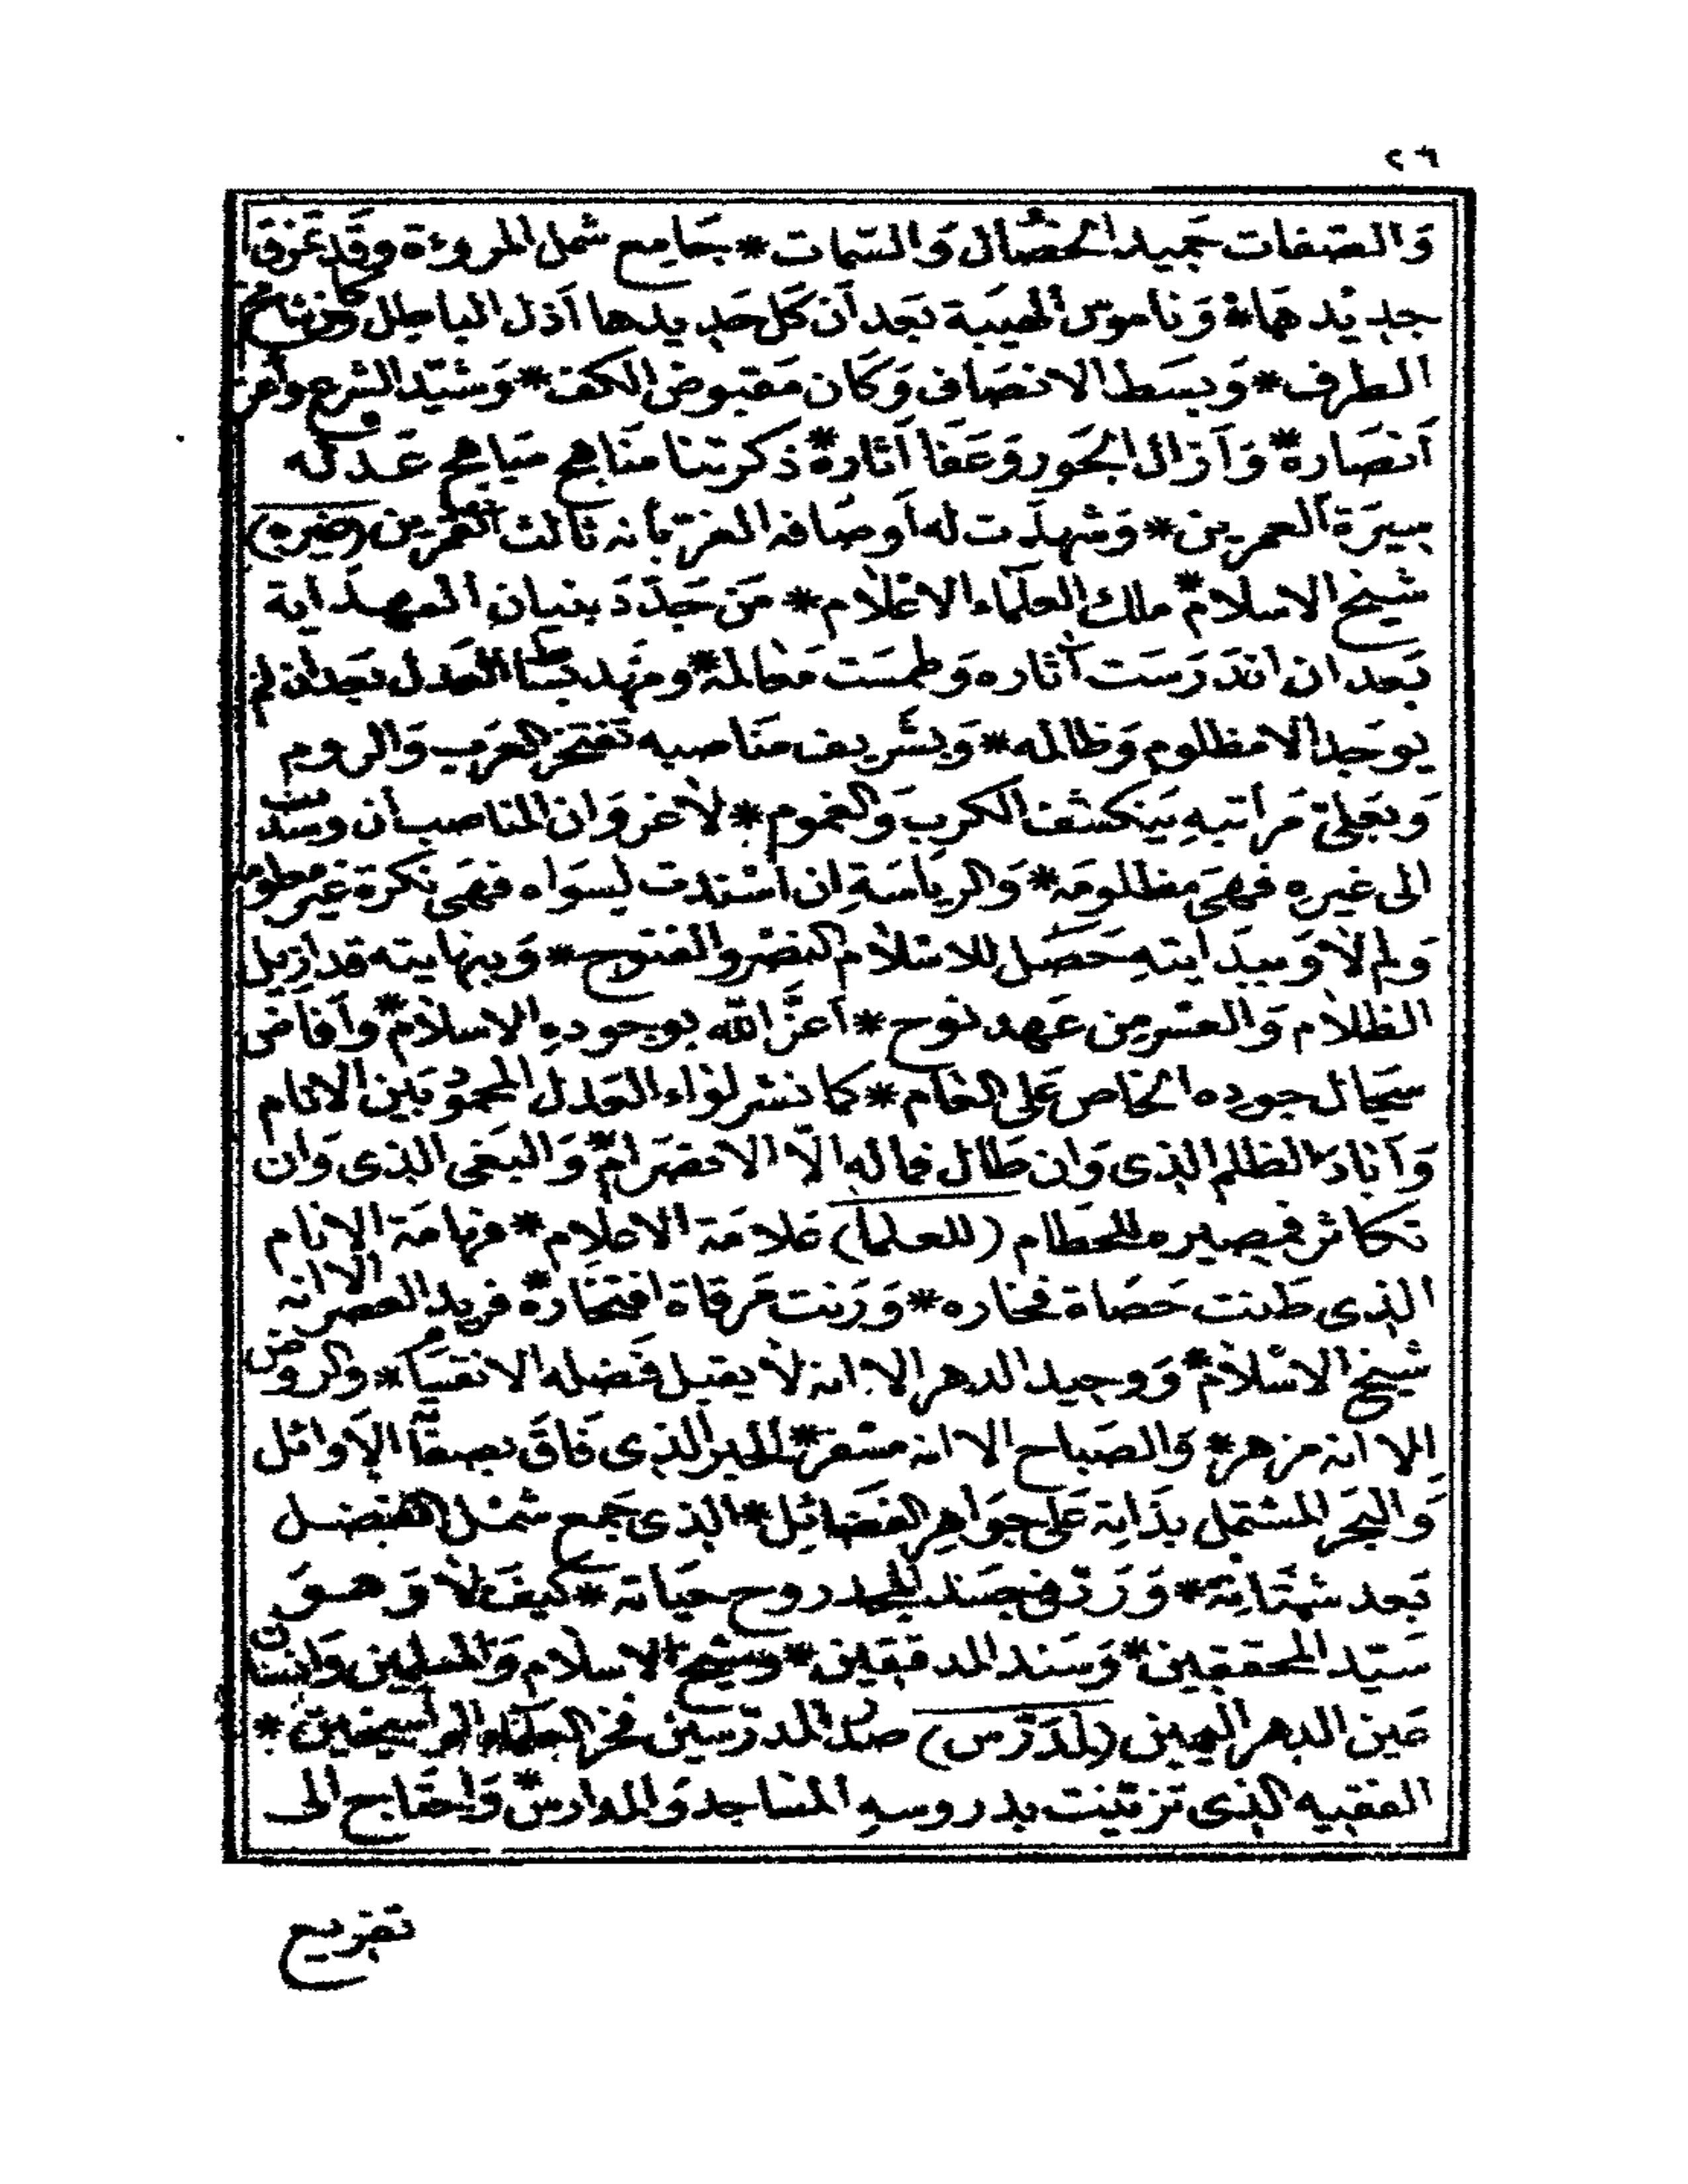 ٢٦
وَالصفات حَميد الخصَال وَالسّمات * جَامِع شمل المروءة وقَد تمزق
جديدهما * وَناموس الهيبَة بَعد أن كَلّ حَديدها أذل الباطل وكان شامخ
الطرف * وَبسَط الانصَاف وَكَان مَقبوض الكف * وَشيّد الشرع وأعز
أنصَاره * وَأزال الجَور وَعَفا آثاره * ذكرتنا مَناهج مَباهج عَدله
سيرَة العمرين * وَشهدَت له أوصَافه الغرّ بأنه ثالث القمرين (غيره)
شيخ الاسلام * ملك العلمَاء الاعْلام * مَن جَدّدَ بنيان الهدَاية
بَعد ان اندَرَسَت آثاره وَطمسَت مَعالمه * ومَهد بسَاط العَدل بَعد أن لم
يوجَد الا مظلوم وَظالمه * وَبشَريف مَناصبه تَفتخر العَرَب وَالروم
وَبعَليّ مَراتبهِ يَنكشف الكربَ وَالغموم * لاغروَ ان المناصب أن وسّدت
الى غيرِه فهىَ مظلومَه * وَالريَاسَة اِن أسْندت لسَواه فهَى نكرة غير مَعلومه
وَلم لاَ وَببدَايتهِ حَصَل للاسْلام النصْر والفتوح * وَبنهايته قد ازيل
الظلام وَالعشر مِن عَهد نوح * أعَزَّ الله بوجودهِ الاسلام * وأفاضَ
سجَال جوده الخاص عَلى العَام * كما نشر لوَاء العَدل المحمود بَين الانام
وَأبادَ الظلم الذى وَان طَال فما له الاّ الانصرَام * وَالبَغى الذى وَان
تكاثر فمصيره للحطام (للعلما) عَلامَة الاعلام * فهامَة الانام
الذى طَنت حَصَاة فخاره * وَرَنت مَرقاة افتخَاره * فريد العصر الا انه
شيخ الاسْلام * وَوحيد الدهر الا انه لاَ يقبل فَضله الانقسَام * والروض
الا انه مزهر * وَالصَباح الا انه مسفر * للحبر الذى فَاقَ بصفَاته الأوائل
وَالبَحر المشتمل بذَاته عَلى جوَاهِر الفَضَائل * الذى جَمع شمْل الفضل
بَعد شَتَاته * وَرَدّ فى جسَند المجد روح حيَاته * كيفَ لاَ وَهوَ
سَيّد المحققين * وَسَند المدققين * وَشيخ الاسلام وَالمسلمين وَانسان
عَين الدهر اليمين (لمدَرّس) صَدر المدرّسين فخر العلمَاء الرَاسخين *
الفقيه الذى تزيّنت بدروسهِ المسَاجد وَالمدارسْ * وَاحتَاج الى
تفريع